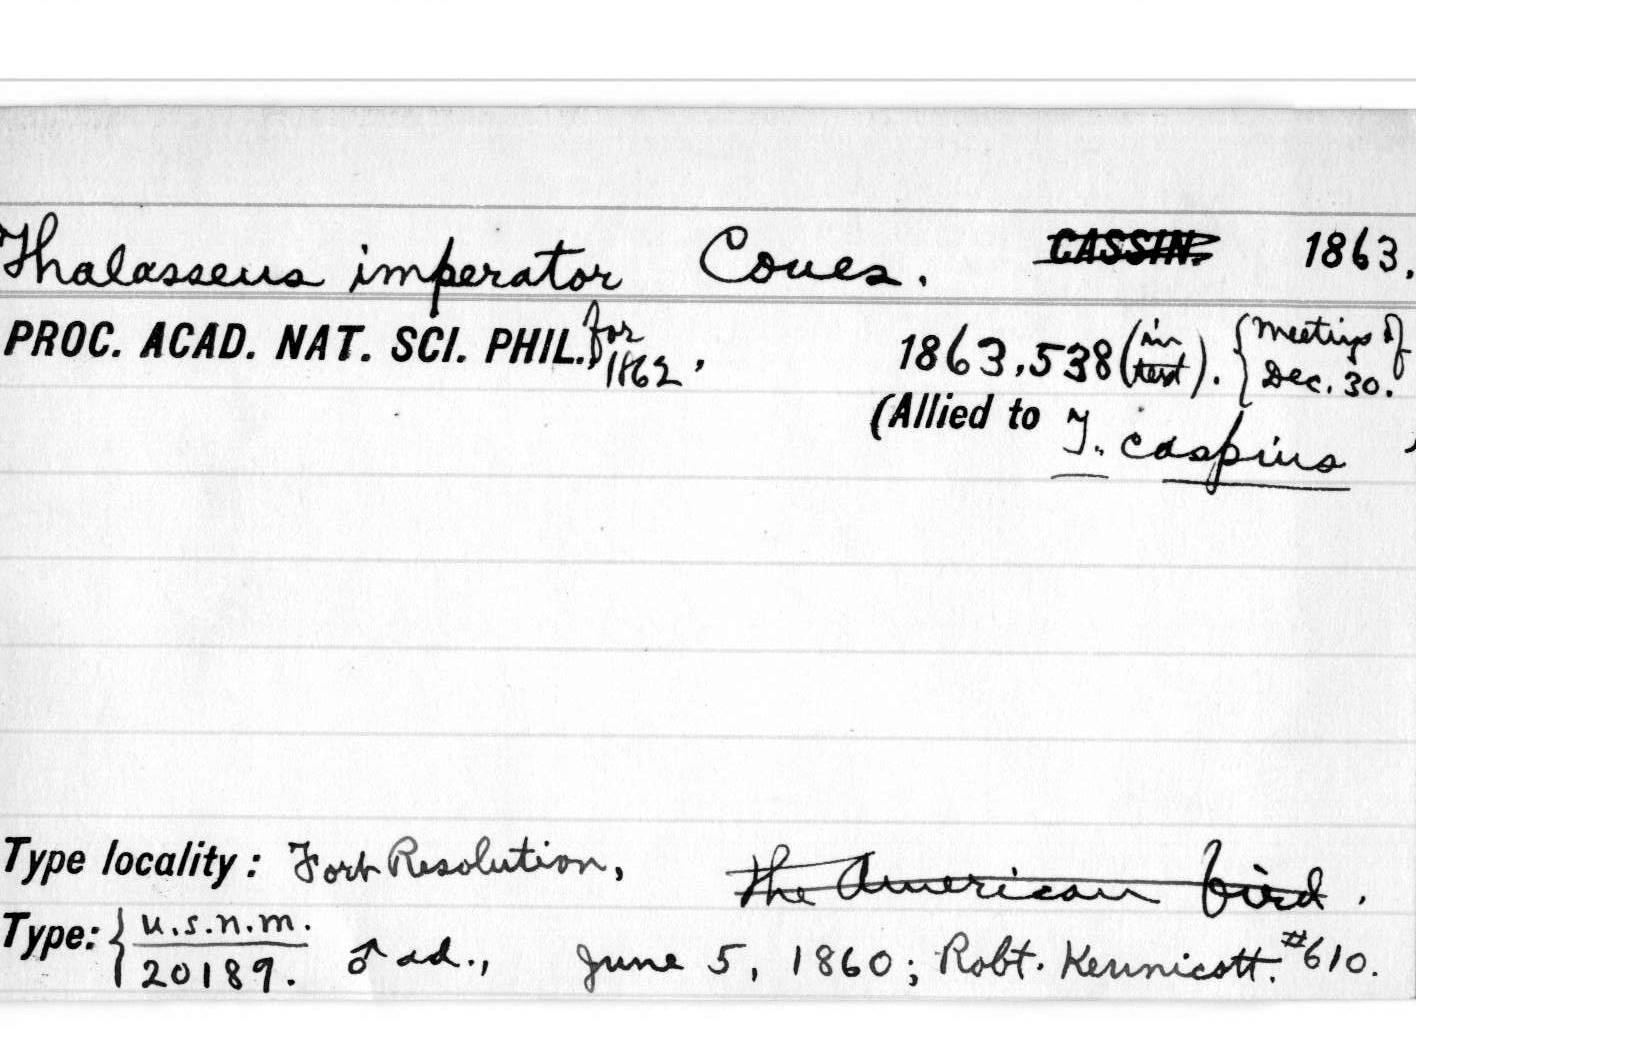 Thalasseus imperator Coues. CASSIN. 1863.
PROC. ACAD. NAT. SCI. PHIL. for 1862, 1863, 538 (in text). {Meeting of Dec. 30.
(Allied to T. caspius
Type locality: Fort Resolution, the American bird.
Type: {U.S.N.M. 20189. ♂ ad., June 5, 1860; Robt. Kennicott. #610.